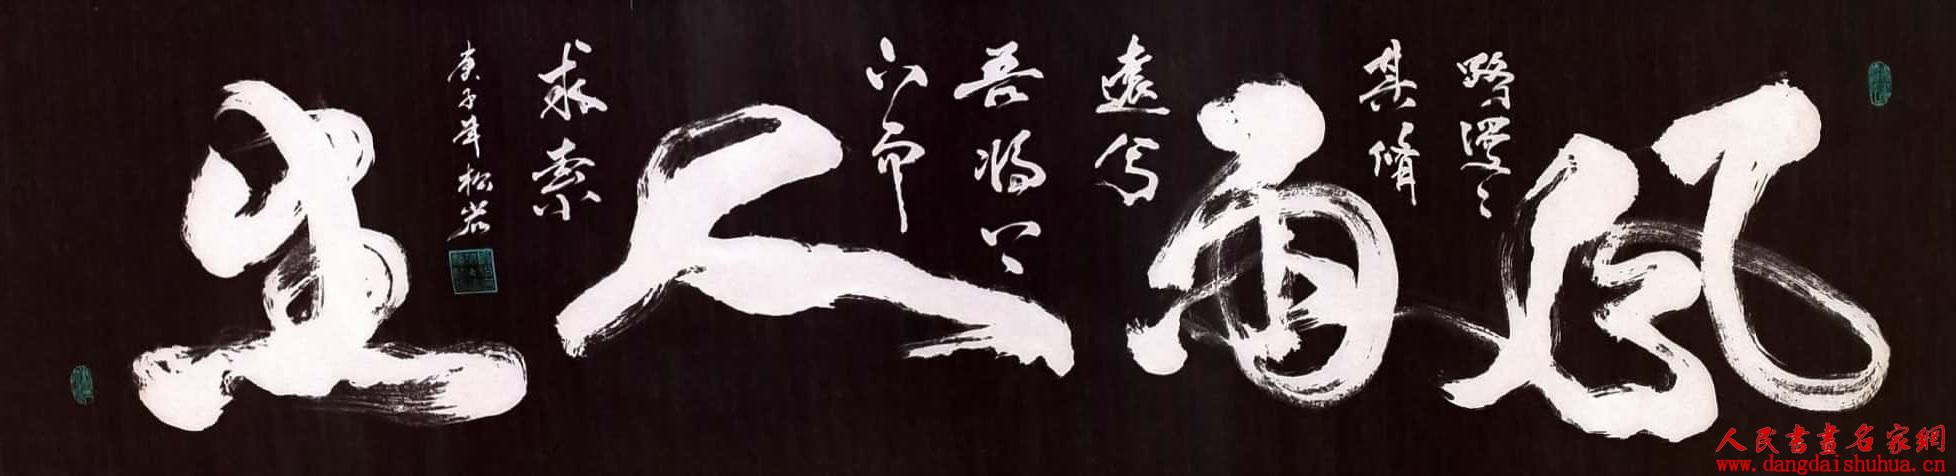 风雨人生
路漫〻
其脩
遠兮
吾将上
下而
求索
庚子年松岩
人民書畫名家網
www.dangdaishuhua.cn